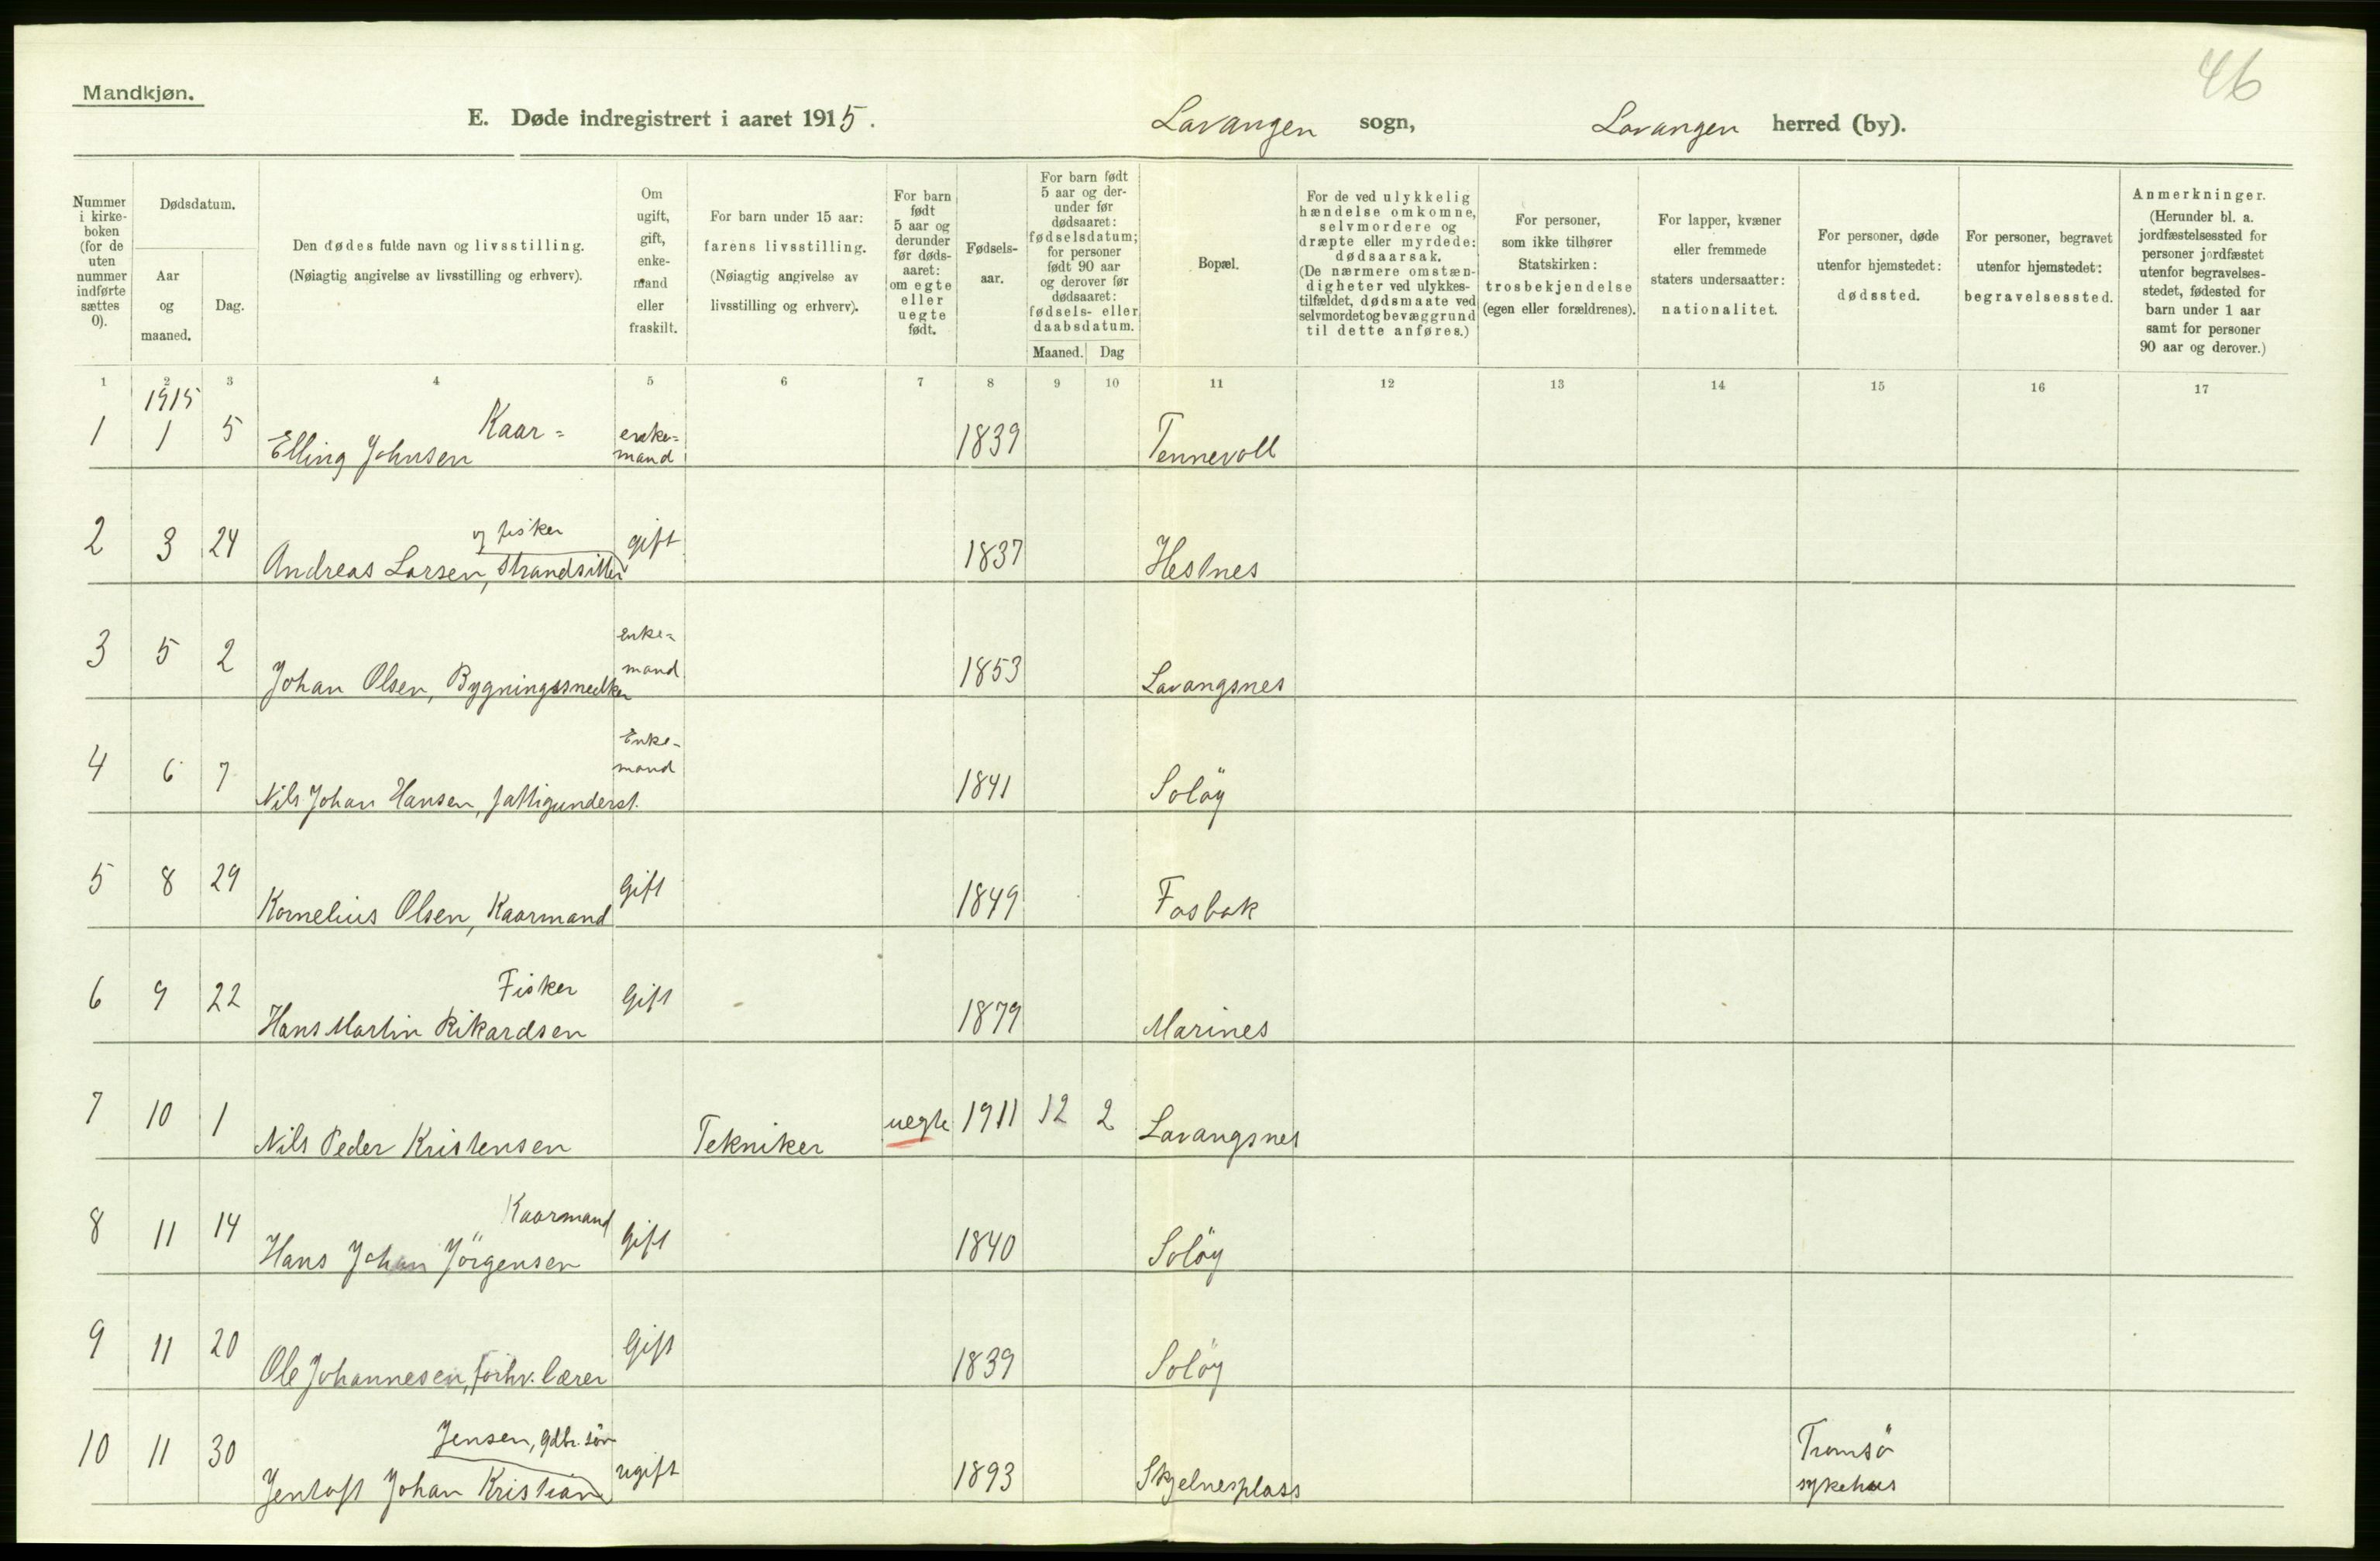 46
Mandkjøn.
E. Døde indregistrert i aaret 1915. Lavangen sogn, Lavangen herred (by).
Nummer i kirke-boken (for de uten nummer indførte sættes 0).
Dødsdatum.
Aar og maaned.
Dag.
Den dødes fulde navn og livsstilling.
(Nøiagtig angivelse av livsstilling og erhverv).
Om ugift, gift, enke-mand eller fraskilt.
For barn under 15 aar:
farens livsstilling.
(Nøiagtig angivelse av
livsstilling og erhverv).
For barn født 5 aar og derunder før døds-aaret: om egte eller uegte født.
Fødsels-aar.
For barn født 5 aar og der-under før dødsaaret: fødselsdatum; for personer født 90 aar og derover før dødsaaret: fødsels- eller daabsdatum.
Maaned. Dag
Bopæl.
For de ved ulykkelig hændelse omkomne, selvmordere og dræpte eller myrdede: dødsaarsak. (De nærmere omstæn-digheter ved ulykkes-tilfældet, dødsmaate ved selvmordet og bevæggrund til dette anføres.)
For personer, som ikke tilhører Statskirken: trosbekjendelse (egen eller forældrenes).
For lapper, kvæner eller fremmede staters undersaatter: nationalitet.
For personer, døde utenfor hjemstedet: dødssted.
For personer, begravet utenfor hjemstedet: begravelsessted.
Anmerkninger.
(Herunder bl. a. jordfæstelsessted for personer jordfæstet utenfor begravelses-stedet, fødested for barn under 1 aar samt for personer 90 aar og derover.)
1 2 3 4 5 6 7 8 9 10 11 12 13 14 15 16 17
1915
1 1 5 Elling Johnsen Kaar= enke=mand 1839 Tennevoll
2 3 24 Andreas Larsen, strandsitter og fisker gift 1837 Hestnes
3 5 2 Johan Olsen, Bygningssnedker enke=mand 1853 Lavangsnes
4 6 7 Nils Johan Hansen, fattigunderst. Enke-mand 1841 Soløy
5 8 29 Kornelius Olsen, Kaarmand Gift 1849 Fosbak
6 9 22 Hans Martin Rikardsen Fisker Gift 1879 Marines
7 10 1 Nils Peder Kristensen Tekniker uegte 1911 12 2 Lavangsnes
8 11 14 Hans Johan Jörgensen Kaarmand Gift 1840 Solöy
9 11 20 Ole Johannesen, forhv. lærer Gift 1839 Solöy
10 11 30 Jentoft Johan Kristian Jensen, gdbr. sön ugift 1893 Skjelnesplass Tromsö sykehus